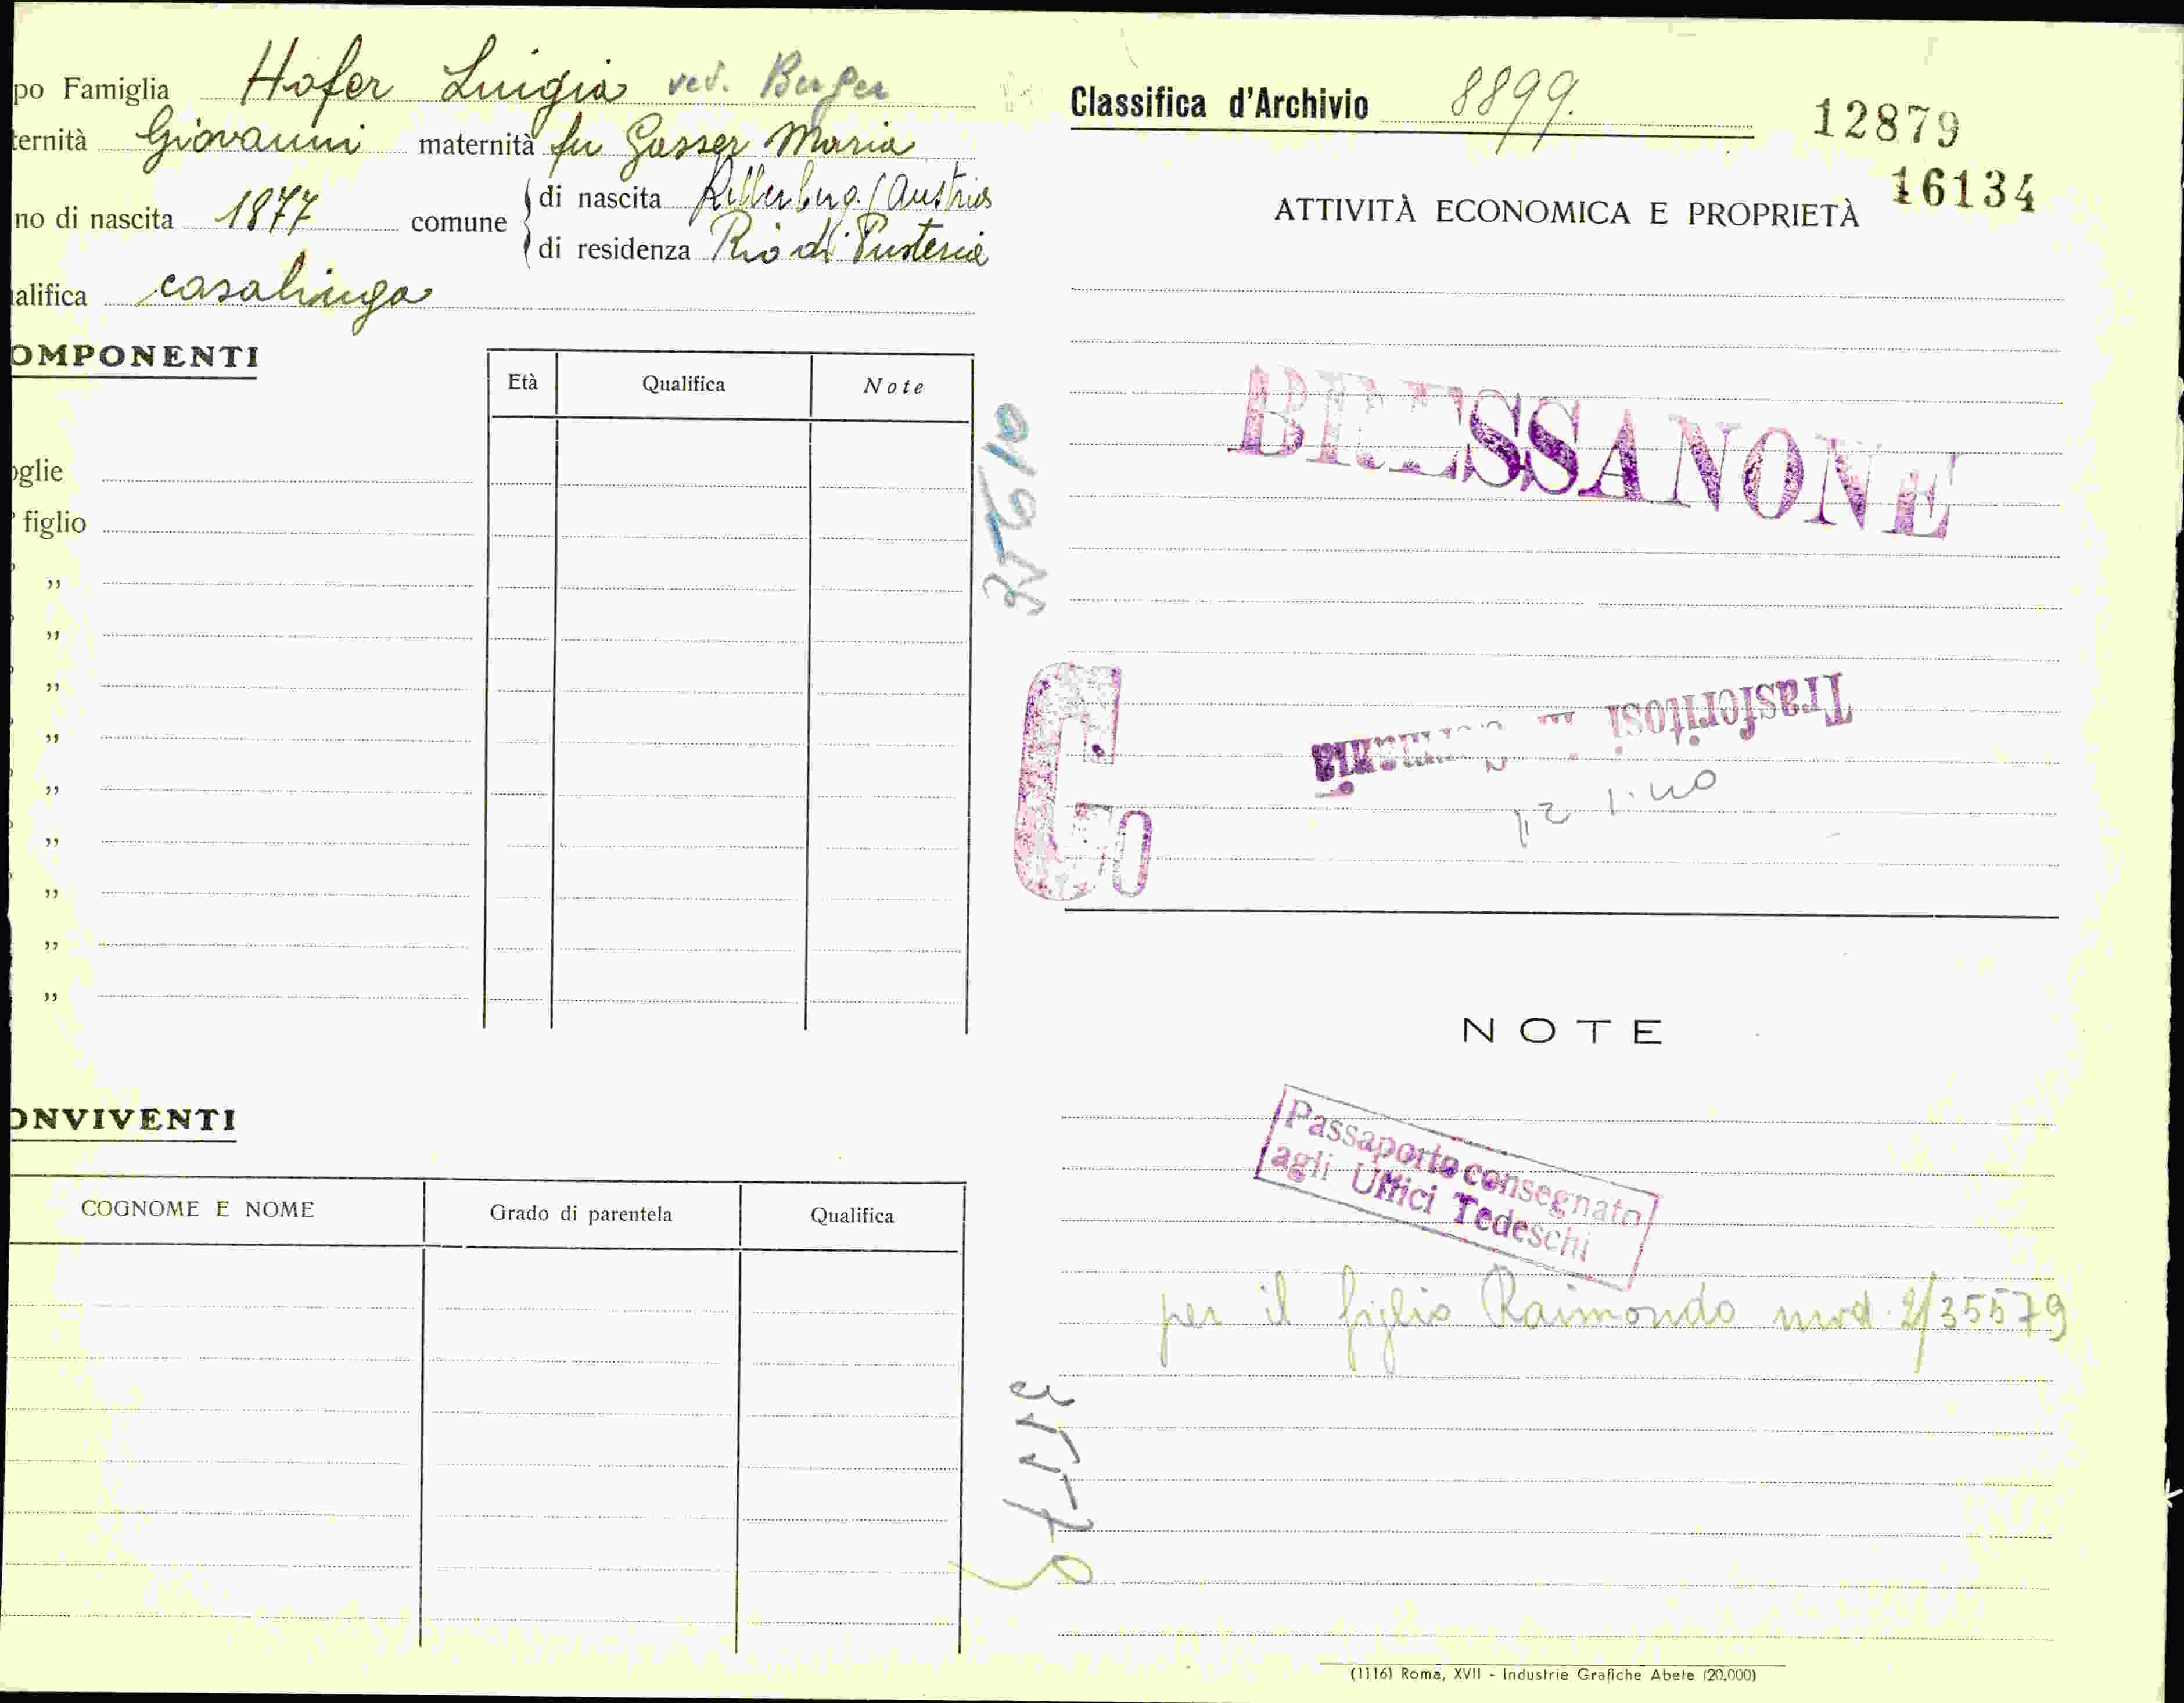 po Famiglia Hofer Luigia ved. Berger
ternità Giovanni maternità fu Gasser Maria
no di nascita 1877 comune
di nascita (Austria
di residenza Rio di Pusteria
alifica casalinga
OMPONENTI
Età Qualifica Note
oglie
figlio
„
„
„
„
„
„
„
„
„
ONVIVENTI
COGNOME E NOME Grado di parentela Qualifica
Classifica d'Archivio 8899.
12879
16134
ATTIVITÀ ECONOMICA E PROPRIETÀ
BRESSANONE
Trasferitosi in Germania
NOTE
Passaporto consegnato
agli Uffici Tedeschi
per il figlio Raimondo mod. 2/35579
(1116) Roma, XVII - Industrie Grafiche Abete (20.000)